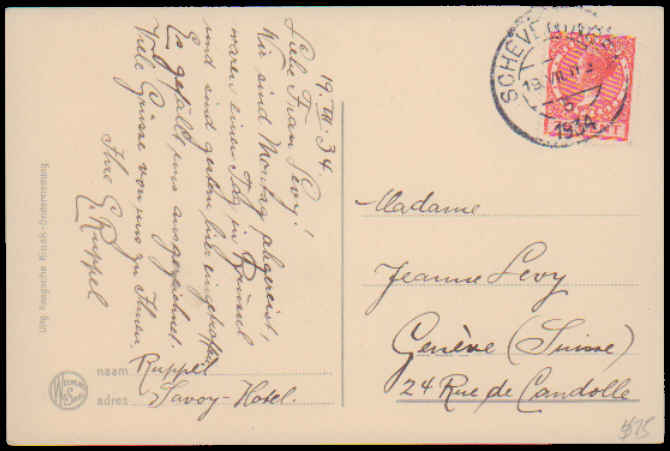 19.VII.34.
Liebe Frau Levy!
Wir sind Montag abgereist,
waren einen Tag in Brüssel
und sind gestern hier eingetroffen
Es gefällt uns ausgezeichnet.
Viele Grüsse von uns zu Ihnen
Ihre E. Ruppel
naam Ruppel
adres Savoy-Hotel.
SCHEVENINGEN
19.VII
1934
CENT
Madame
Jeanne Levy
Genève (Suisse)
24 Rue de Candolle